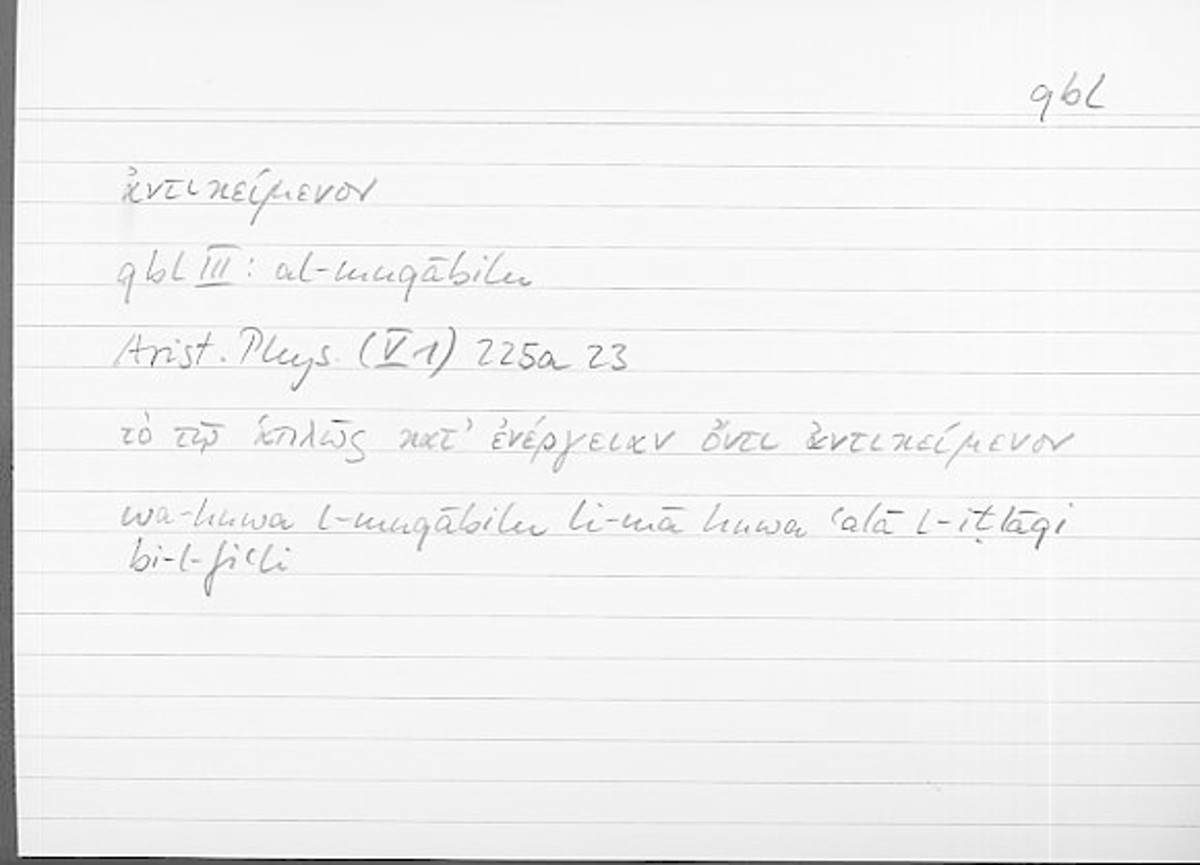 qbl
ἀντικείμενον
qbl III: al-muqābilu
Arist. Phys. (V 1) 225a 23
τὸ τῷ ἁπλῶς κατ' ἐνέργειαν ὄντι ἀντικείμενον
wa-huwa l-muqābilu li-mā huwa ʿalā l-iṭlāqi
bi-l-fiʿli